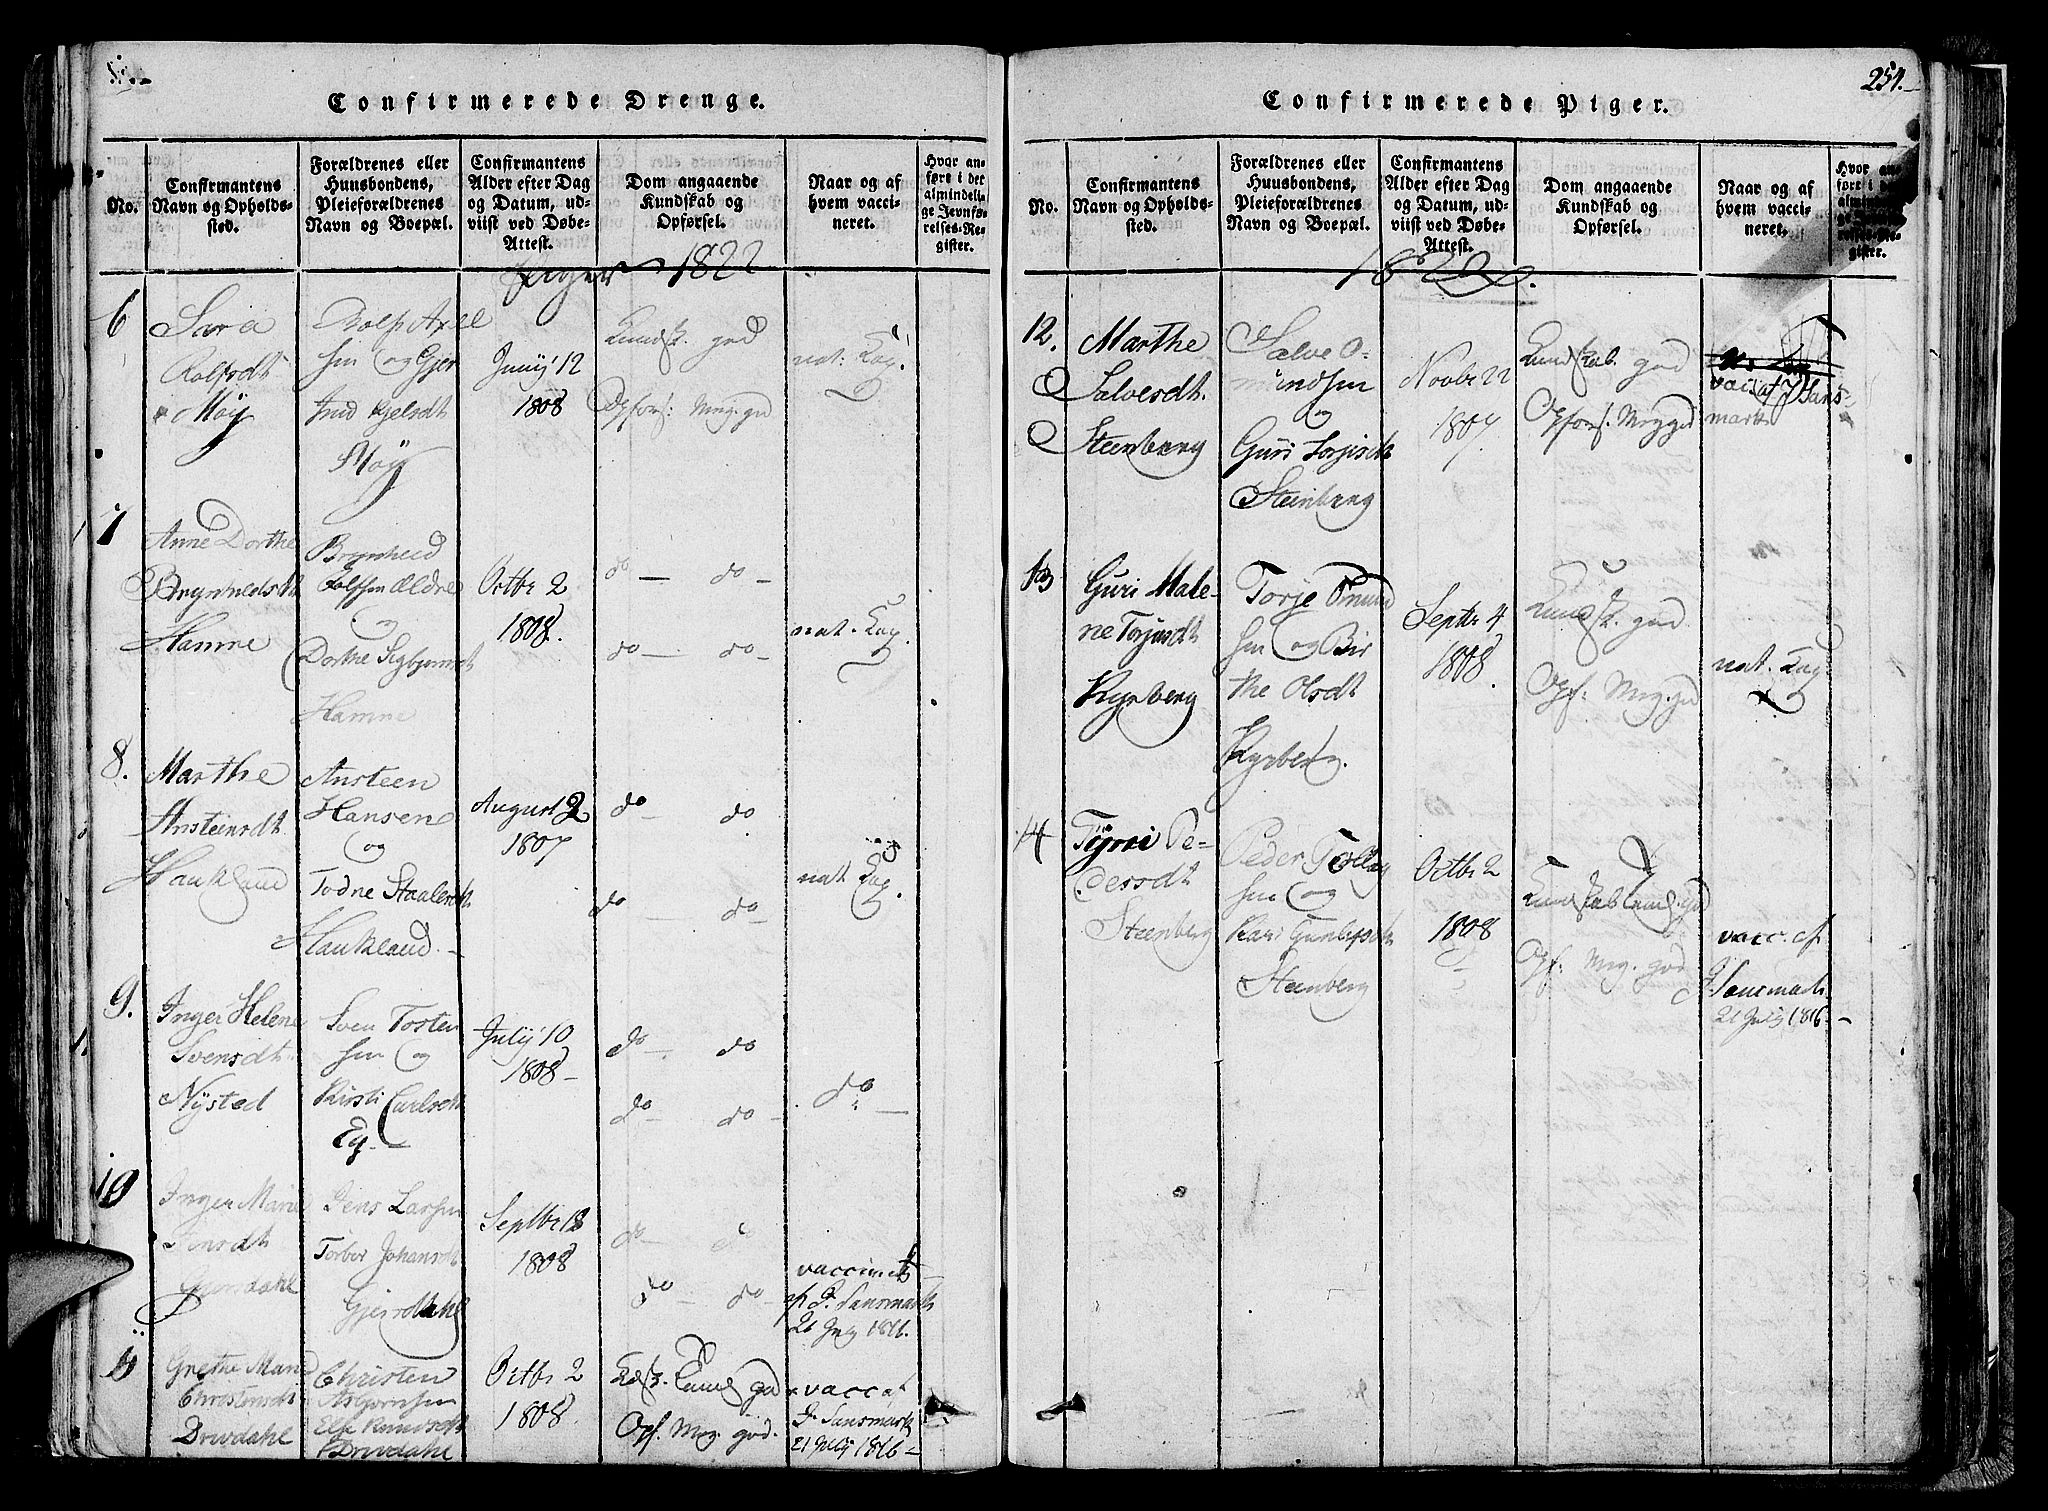 Confirmerede Drenge.
No.
Confirmantens
Navn og Opholds-
sted.
Forældrenes eller
Huusbondens,
Pleieforældrenes
Navn og Boepæl.
Confirmantens
Alder efter Dag
og Datum, ud-
viist ved Døbe-
Attest.
Dom angaaende
Kundskab og
Opførsel.
Naar og af
hvem vacci-
neret.
Hvor an-
ført i det
almindeli-
ge Jevnfø-
relses-Re-
gister.
Piger 1822
6
Sara
Rolfsdt
Møy
Rolf Axel
sen og Gjer
trud Gjelsdt
Møy
Junij 12
1808
Kundsk. god
Opførs: Meg. god
nat: Kop.
7
Anne Dorthe
Brynildsdt
Hamne
Rolfsen Ældre
og
Dorthe Sigbjørnsdt
Hamne
Octbr 2
1808.
do — do —
do — do —
nat. Kop.
8.
Marthe
Ansteinsdt
Haukland
Ansteen
Hansen
og
Todne Staalesdt
Haukland.
August 2
1807
do — do
do — do —
nat Kop.
9.
Inger Helene
Svensdt
Nysted
Sven Tosten
sen og
Kirsti Carlsdt
Eg —
Julij 10
1808 —
do — do
do — do —
do —
10
Inger Marie
Jensdt
Jens Larsen
Torber Johansdt
Gjerdtahl
Septbr 18
1808
do — do
do — do —
vaccineret
af J. Sansmark
21 July 1816.
Grethe Mari
Christensdt
Drivdahl
Christen
Asbjørnsen
Elle Knudsdt
Drivdahl
Octbr 2
1808.
Kdsk. temel. god
Opf. Meg. god.
vacc af
J. Sansmark
21 Julij 1816 —
254.
Confirmerede Piger.
No.
Confirmantens
Navn og Opholds-
sted.
Forældrenes eller
Huusbondens,
Pleieforældrenes
Navn og Boepæl.
Confirmantens
Alder efter Dag
og Datum, ud-
viist ved Døbe-
Attest.
Dom angaaende
Kundskab og
Opførsel.
Naar og af
hvem vacci-
neret.
Hvor an-
ført i det
almindeli-
ge Jevnfø-
relses-Re-
gister.
1822.
12.
Marthe
Salvesdt.
Steenberg
Salve O-
mundsen
og
Guri Torjesdt
Steinberg
Novbr 22
1807.
Kundskab. god
Opførs. Meg god
vacc af J Sans-
mark
13
Guri Male-
ne Torjusdt
Rysberg
Torje Omund
sen og Bir
the Olsdt
Rysberg.
Septbr 4
1808.
Kundsk. god
Opf: Meg. god
nat. Kop
14
Pe-
dersdt
Steenberg
Peder Tollag
sen og
Kari Gunlefsdt
Steenberg
Octbr 2
1808
Kundskab temel. God
Opf: Meg. god
vacc. af
J. Sansmark
21 July 1816 —